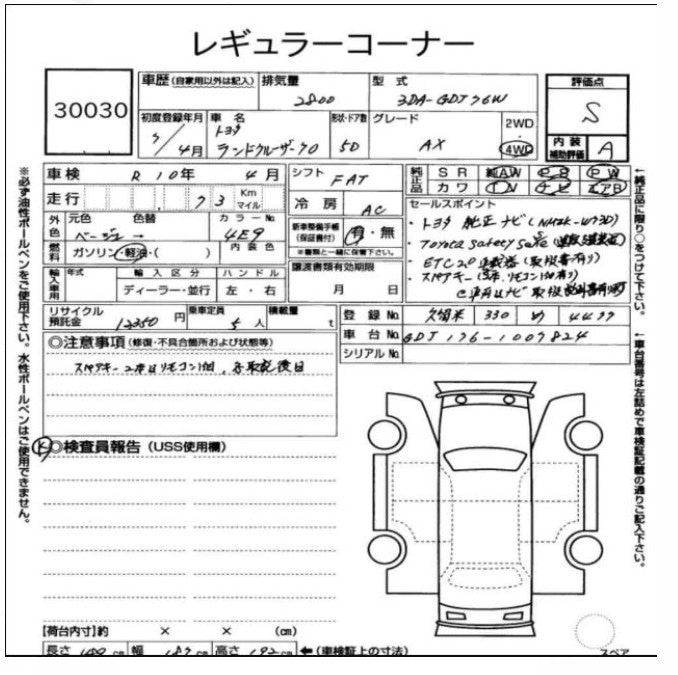 レギュラーコーナー
30030
車歴 (自家用以外は記入) 排気量 2800 型式 3DA-GDJ76W 評価点 S
初度登録年月 7/4月 車名 トヨタ ランドクルーザー70 形状・ドア数 5D グレード AX 2WD・4WD 内装補助評価 A
車検 R10年 4月 シフト FAT 純正品 SR 純AW PS PW
カワ TV ナビ エアB
走行 73 Km マイル 冷房 AC
外色 元色 ベージュ 色替 → カラーNo. 4E9 新車整備手帳(保証書付) 有・無 ※書類と一緒に保管下さい。
燃料 ガソリン・軽油・( ) 内装色
輸入車用 年式 輸入区分 ディーラー・並行 ハンドル 左・右 譲渡書類有効期限 月 日
セールスポイント
・トヨタ純正ナビ
・Toyota safety
・ETC2.0
・スペアキー
リサイクル預託金 12350円 乗車定員 5人 積載量 t 登録No. 久留米 330
車台No. GDJ76-1007824
シリアルNo.
◎注意事項 (修復・不具合箇所および状態等)
スペアキー
◎検査員報告 (USS使用欄)
【荷台内寸】約 × × (cm)
長さ cm 幅 187cm 高さ 192cm ←(車検証上の寸法)
スペア
※必ず油性ボールペンをご使用下さい。水性ボールペンはご使用できません。
←純正品に限り○をつけて下さい。
←車台番号は左詰めで車検証記載の通りご記入下さい。